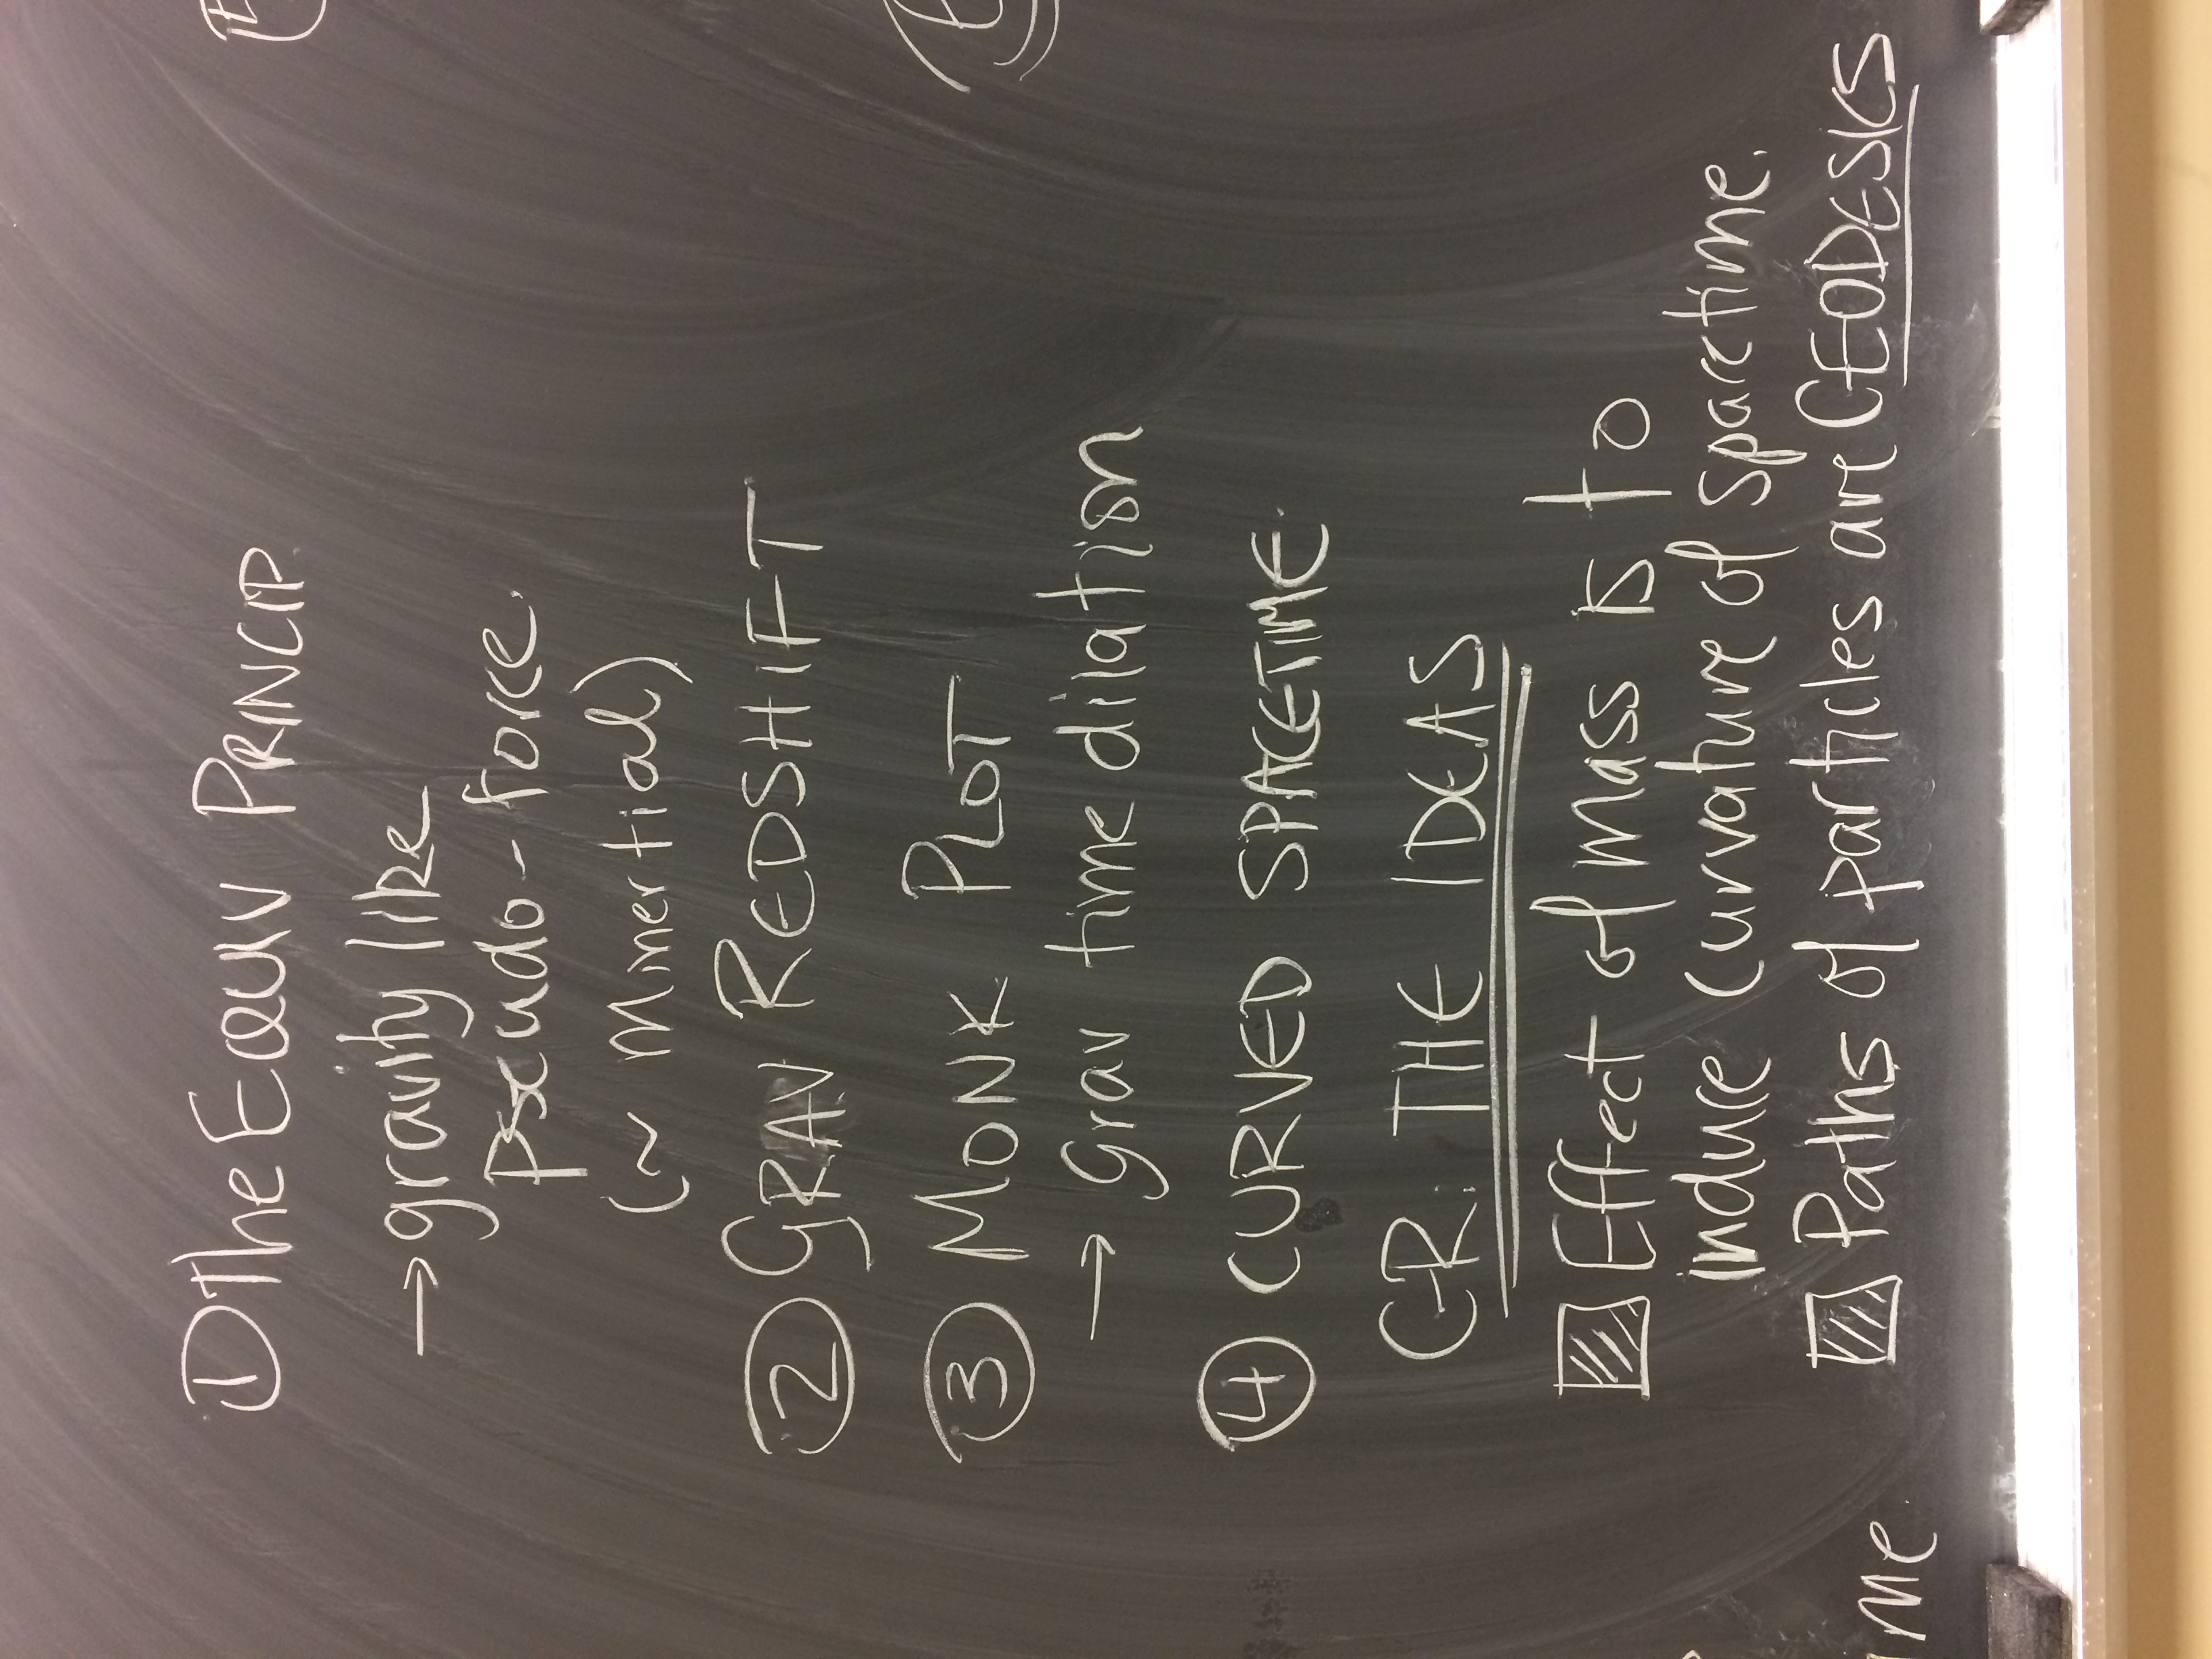 ① The EQUIV PRINCIP.
→ gravity like
pseudo-force.
(~ Minertial)
② GRAV REDSHIFT
③ MONK PLOT
→ Grav time dilation
④ CURVED SPACETIME.
GR: THE IDEAS
Effect of mass is to
induce curvature of spacetime.
Paths of particles are GEODESICS